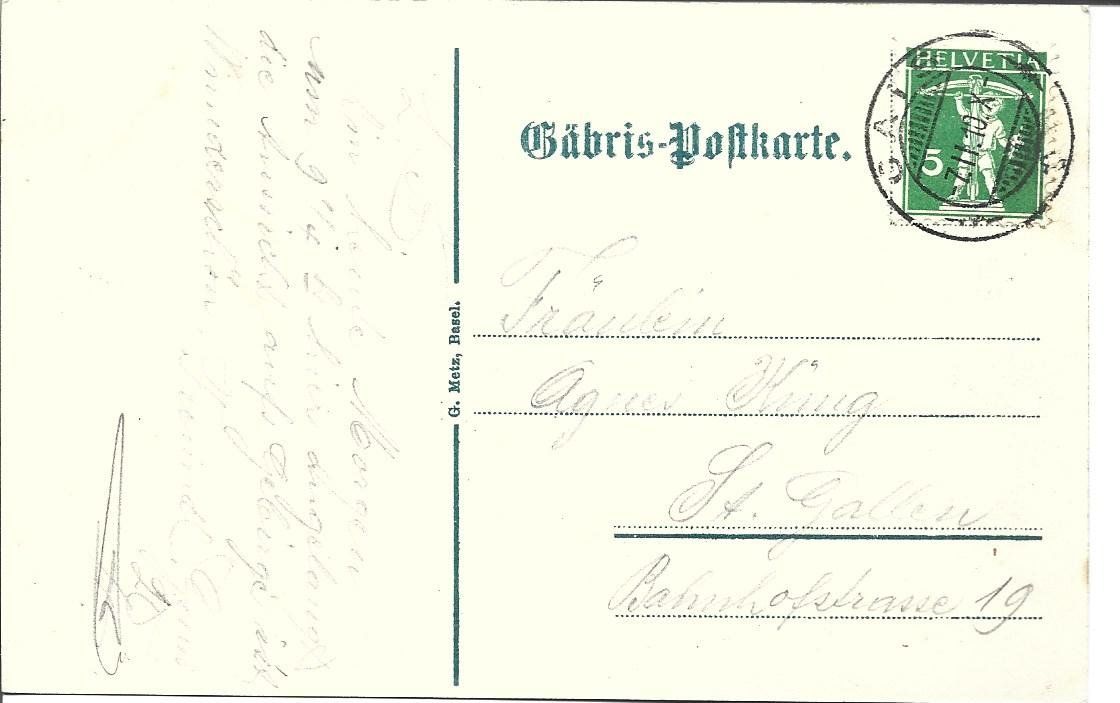 Gäbris-Postkarte.
HELVETIA
5
GAIS
-7.II.10.X-
G. Metz, Basel.
Fräulein
Agnes Küng
St. Gallen
Bahnhofstrasse 19
Bin heute Morgen
um 9¼ hier angelangt
die Aussicht aufs Gebirge ist
wunderschön.